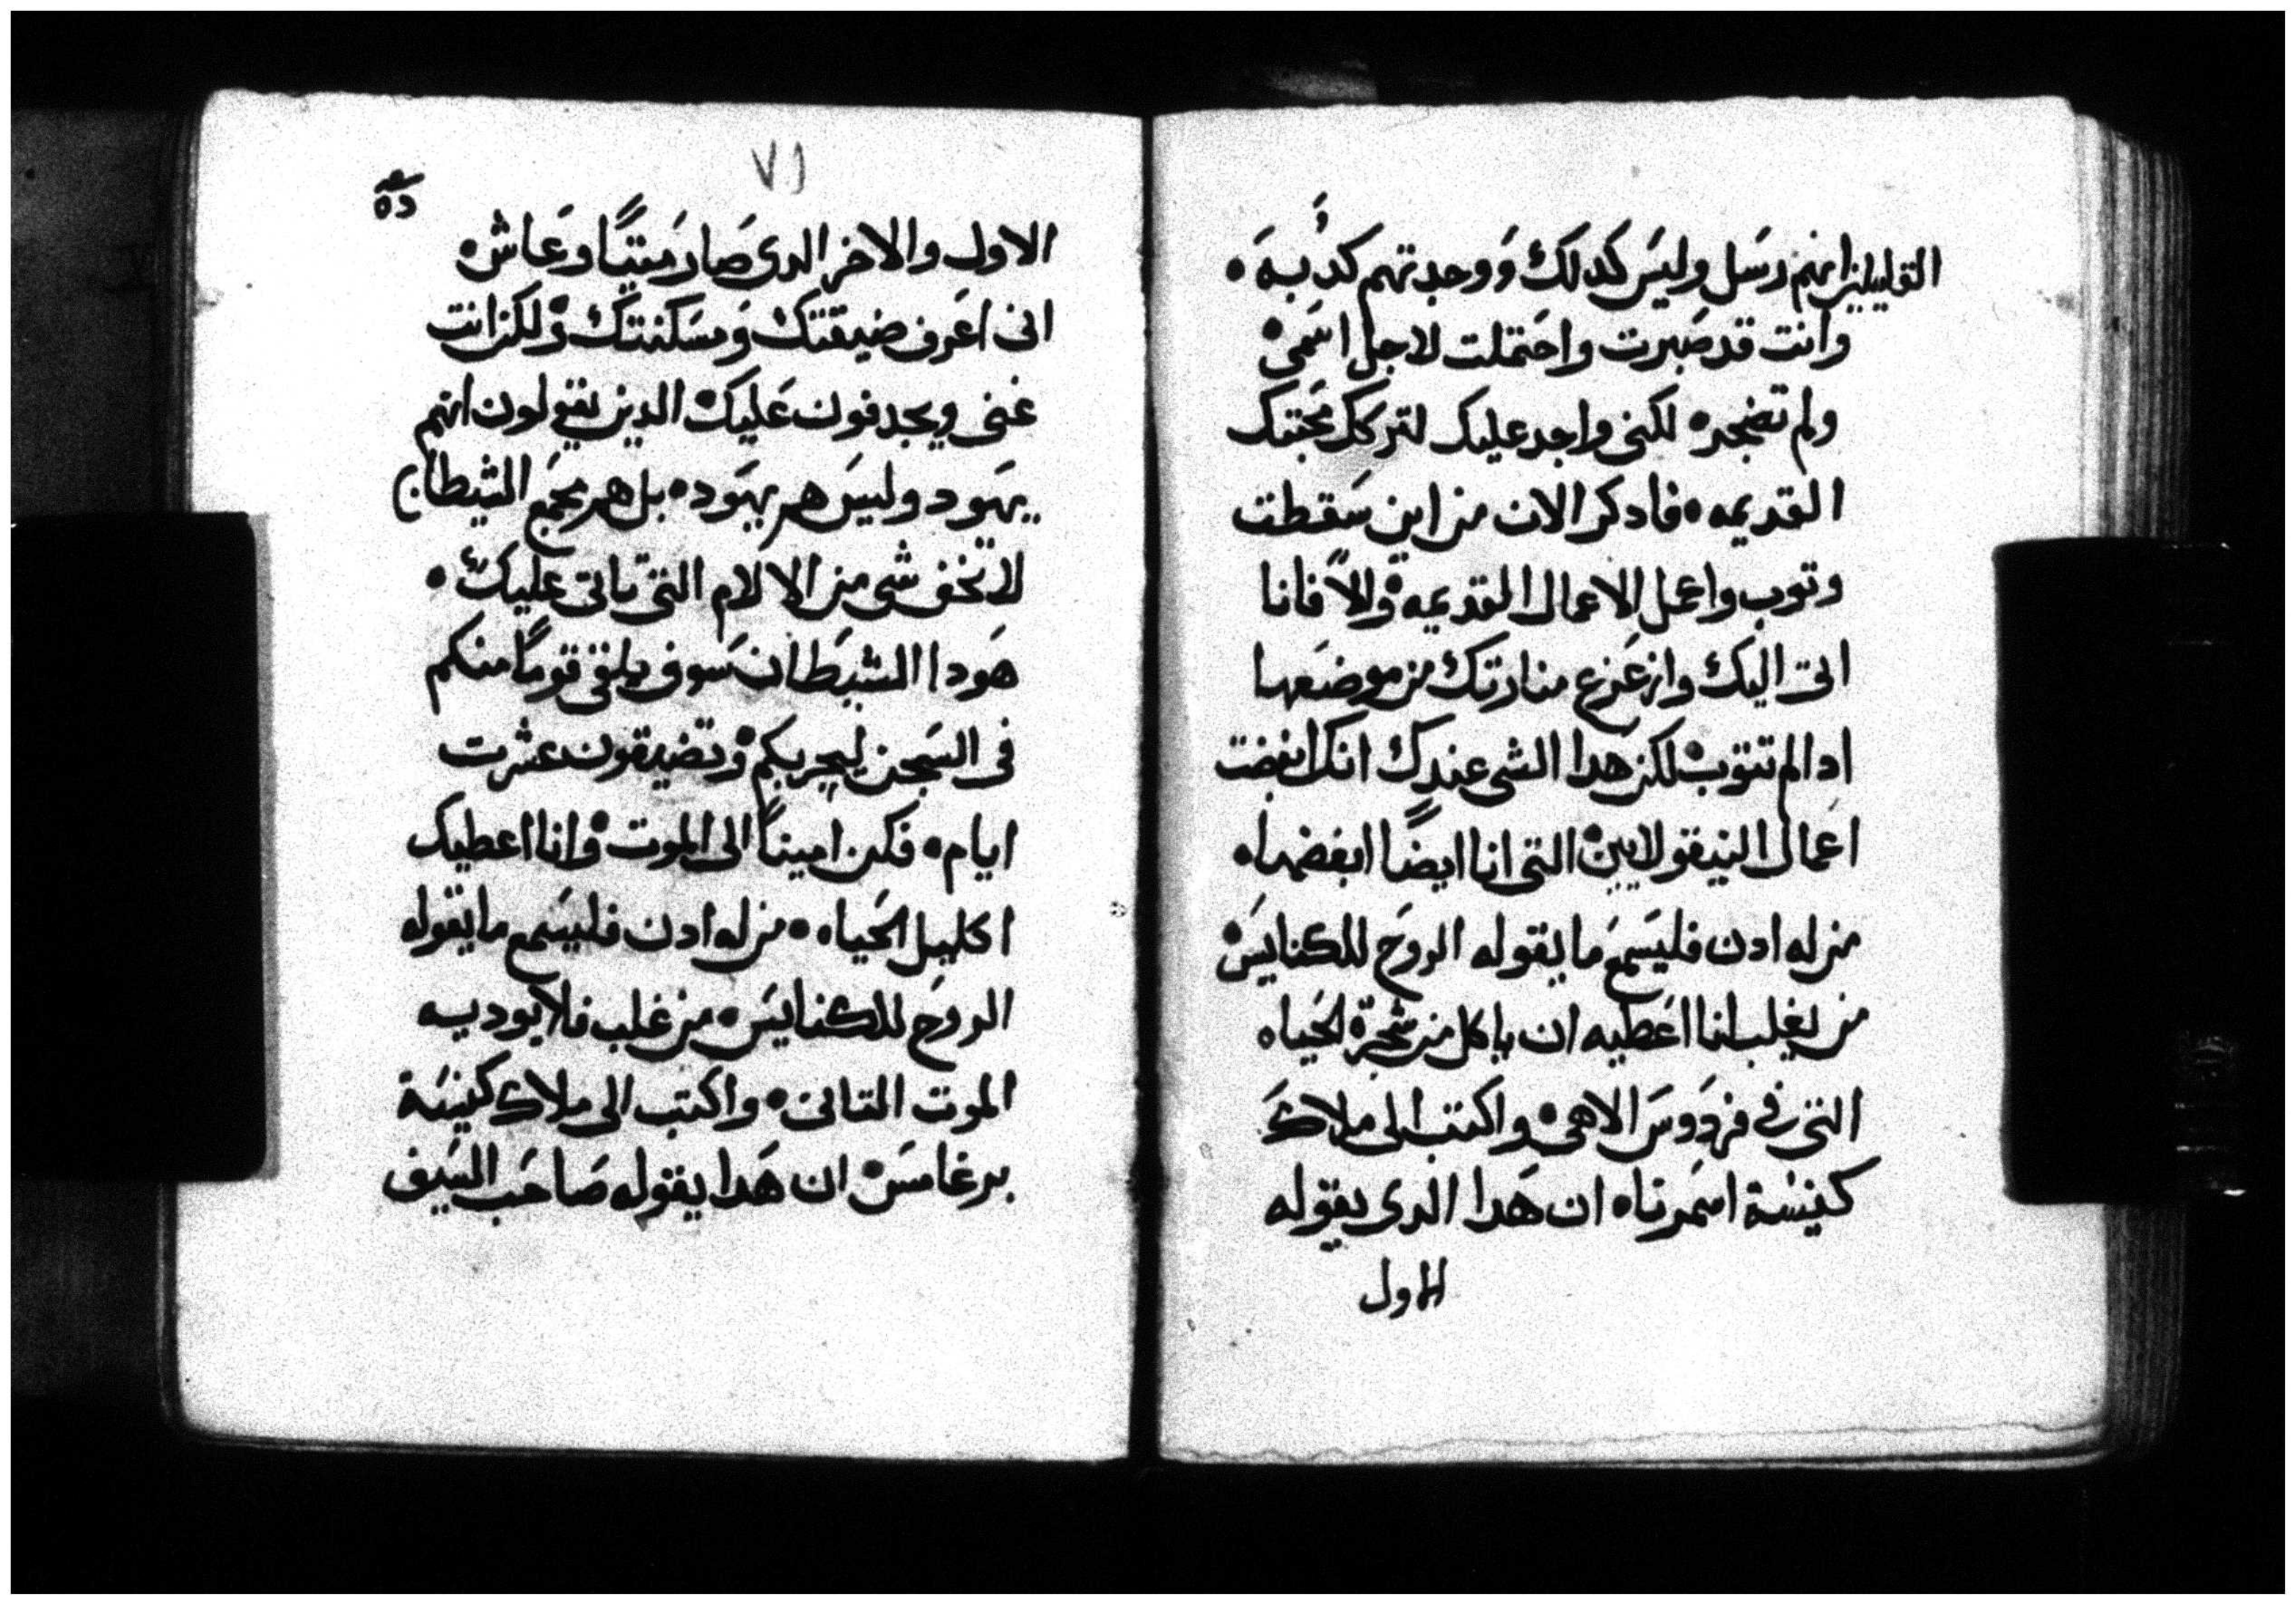 القايلين انهم رسل وليس كدلك ووجدتهم كدبه
وانت قد صبرت واحتملت لاجل اسمى
ولم تضجر لكنى واجد عليك لتركك محبتك
القديمه فادكر الان من اين سقطت
وتوب واعمل الاعمال القديمه والا فانا
اتى اليك وازعزع منارتك من موضعها
ادا لم تتوب لكن هدا الشى عندك انك ابغضت
اعمال النيقولايين التى انا ايضًا ابغضها
من له ادن فليسمع ما يقوله الروح للكنايس
من يغلب انا اعطيه ان ياكل من شجرة الحياه
التى في فردوس الاهى واكتب الى ملاك
كنيسة اسمرنا ان هدا الدى يقوله
الاول
٧١
الاول والاخر الدى صار ميتًا وعاش
انى اعرف ضيقتك ومسكنتك ولكن انت
غنى ويجدفون عليك الدين يقولون انهم
يهود وليس هم يهود بل هم مجمع الشيطان
لا تخف شى من الالام التى تاتى عليك
هودا الشيطان سوف يلقى قومًا منكم
فى السجن ليجربكم وتضيقون عشرت
ايام فكن امينًا الى الموت وانا اعطيك
اكليل الحياه من له ادن فليسمع ما يقوله
الروح للكنايس من غلب فلا يوديه
الموت التانى واكتب الى ملاك كنيسة
برغامس ان هدا يقوله صاحب السيف